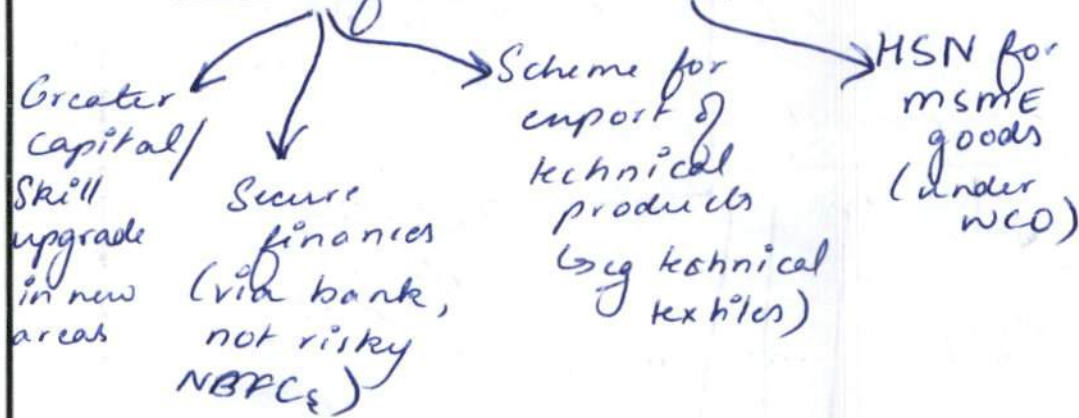 Greater
capital/
Skill
upgrade
in new
areas
Secure
finances
(via bank,
not risky
NBFCs)
Scheme for
export of
technical
products
↳ eg technical
textiles)
HSN for
MSME
goods
(under
WCO)